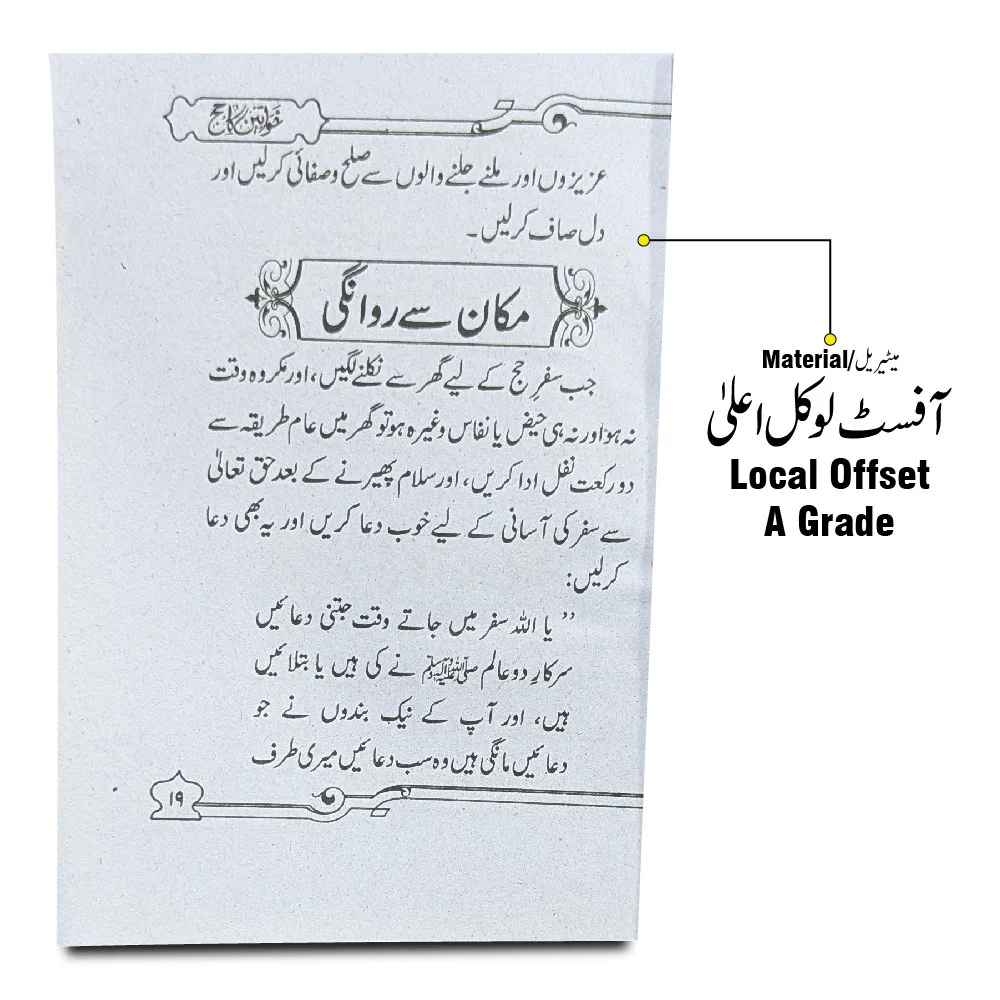 خواتین کا حج
عزیزوں اور ملنے جلنے والوں سے صلح و صفائی کرلیں اور
دل صاف کرلیں۔
مکان سے روانگی
جب سفرِ حج کے لیے گھر سے نکلنے لگیں، اور مکروہ وقت
نہ ہو اور نہ ہی حیض یا نفاس وغیرہ ہو تو گھر میں عام طریقہ سے
دو رکعت نفل ادا کریں، اور سلام پھیرنے کے بعد حق تعالیٰ
سے سفر کی آسانی کے لیے خوب دعا کریں اور یہ بھی دعا
کرلیں:
” یا اللہ سفر میں جاتے وقت جتنی دعائیں
سرکارِ دو عالم ﷺ نے کی ہیں یا بتلائیں
ہیں، اور آپ کے نیک بندوں نے جو
دعائیں مانگی ہیں وہ سب دعائیں میری طرف
۱۹
Material/میٹیریل
آفسٹ لوکل اعلیٰ
Local Offset
A Grade